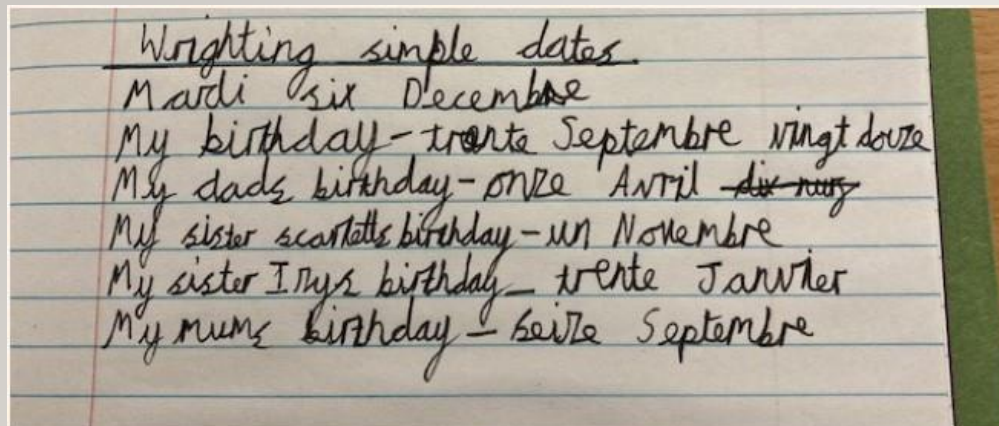 Wrighting simple dates.
Mardi six Decembre
My birthday - trante Septembre vingt douze
My dads birthday - onze Avril
My sister scarletts birthday - un Novembre
My sister Irys birthday - trente Janvier
My mums birthday - seize Septembre